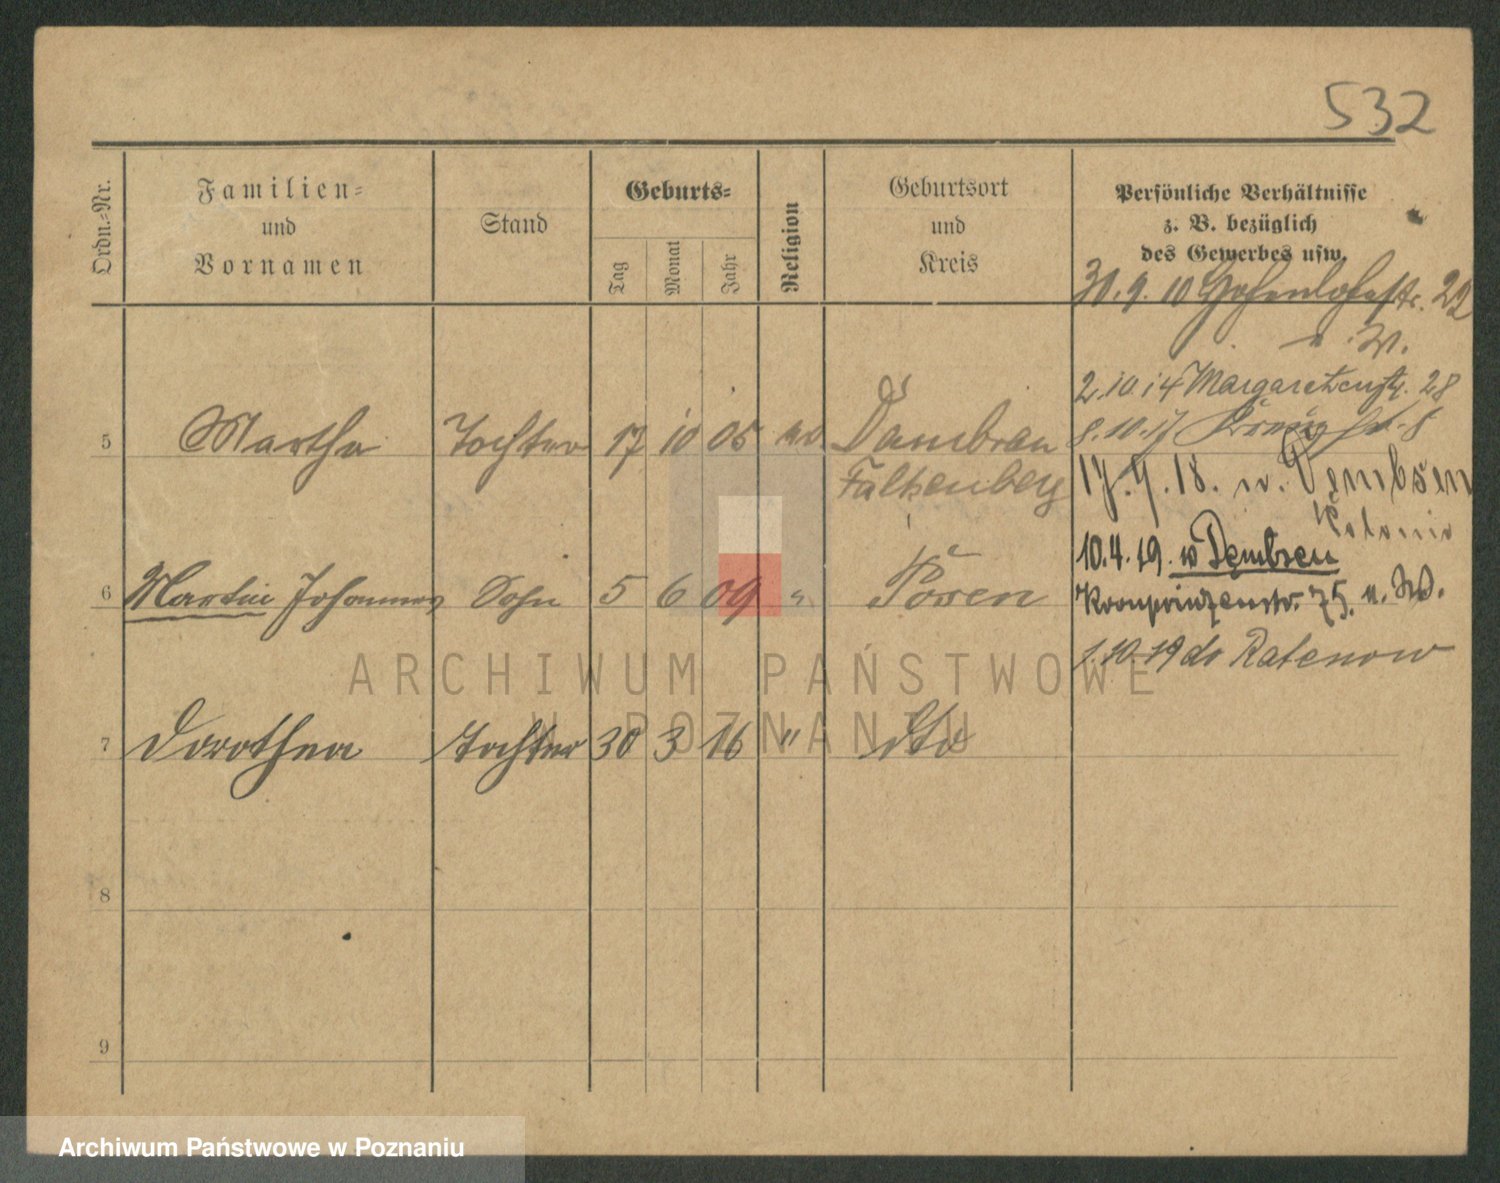 532
Ordn.-Nr.
Familien-
und
Vornamen
Stand
Geburts-
Tag
Monat
Jahr
Religion
Geburtsort
und
Kreis
Persönliche Verhältnisse
z. B. bezüglich
des Gewerbes usw.
30.9.10 Hohenlohestr. 22
n. W.
2.10.14 Margaretenstr. 28
8.10.17
5 Martha Tochter 17 10 05 Dambrau
Falkenberg
17.4.18. n. Dembsen
Kolonie
10.4.19. w Dembsen
6 Martin Johannes Sohn 5 6 09 " Posen
Kronprinzenstr. 75. n. W.
1.10.19 do Ratenow
7 Dorothea Tochter 30 3 16 " dto
8
9
ARCHIWUM PAŃSTWOWE
W POZNANIU
Archiwum Państwowe w Poznaniu